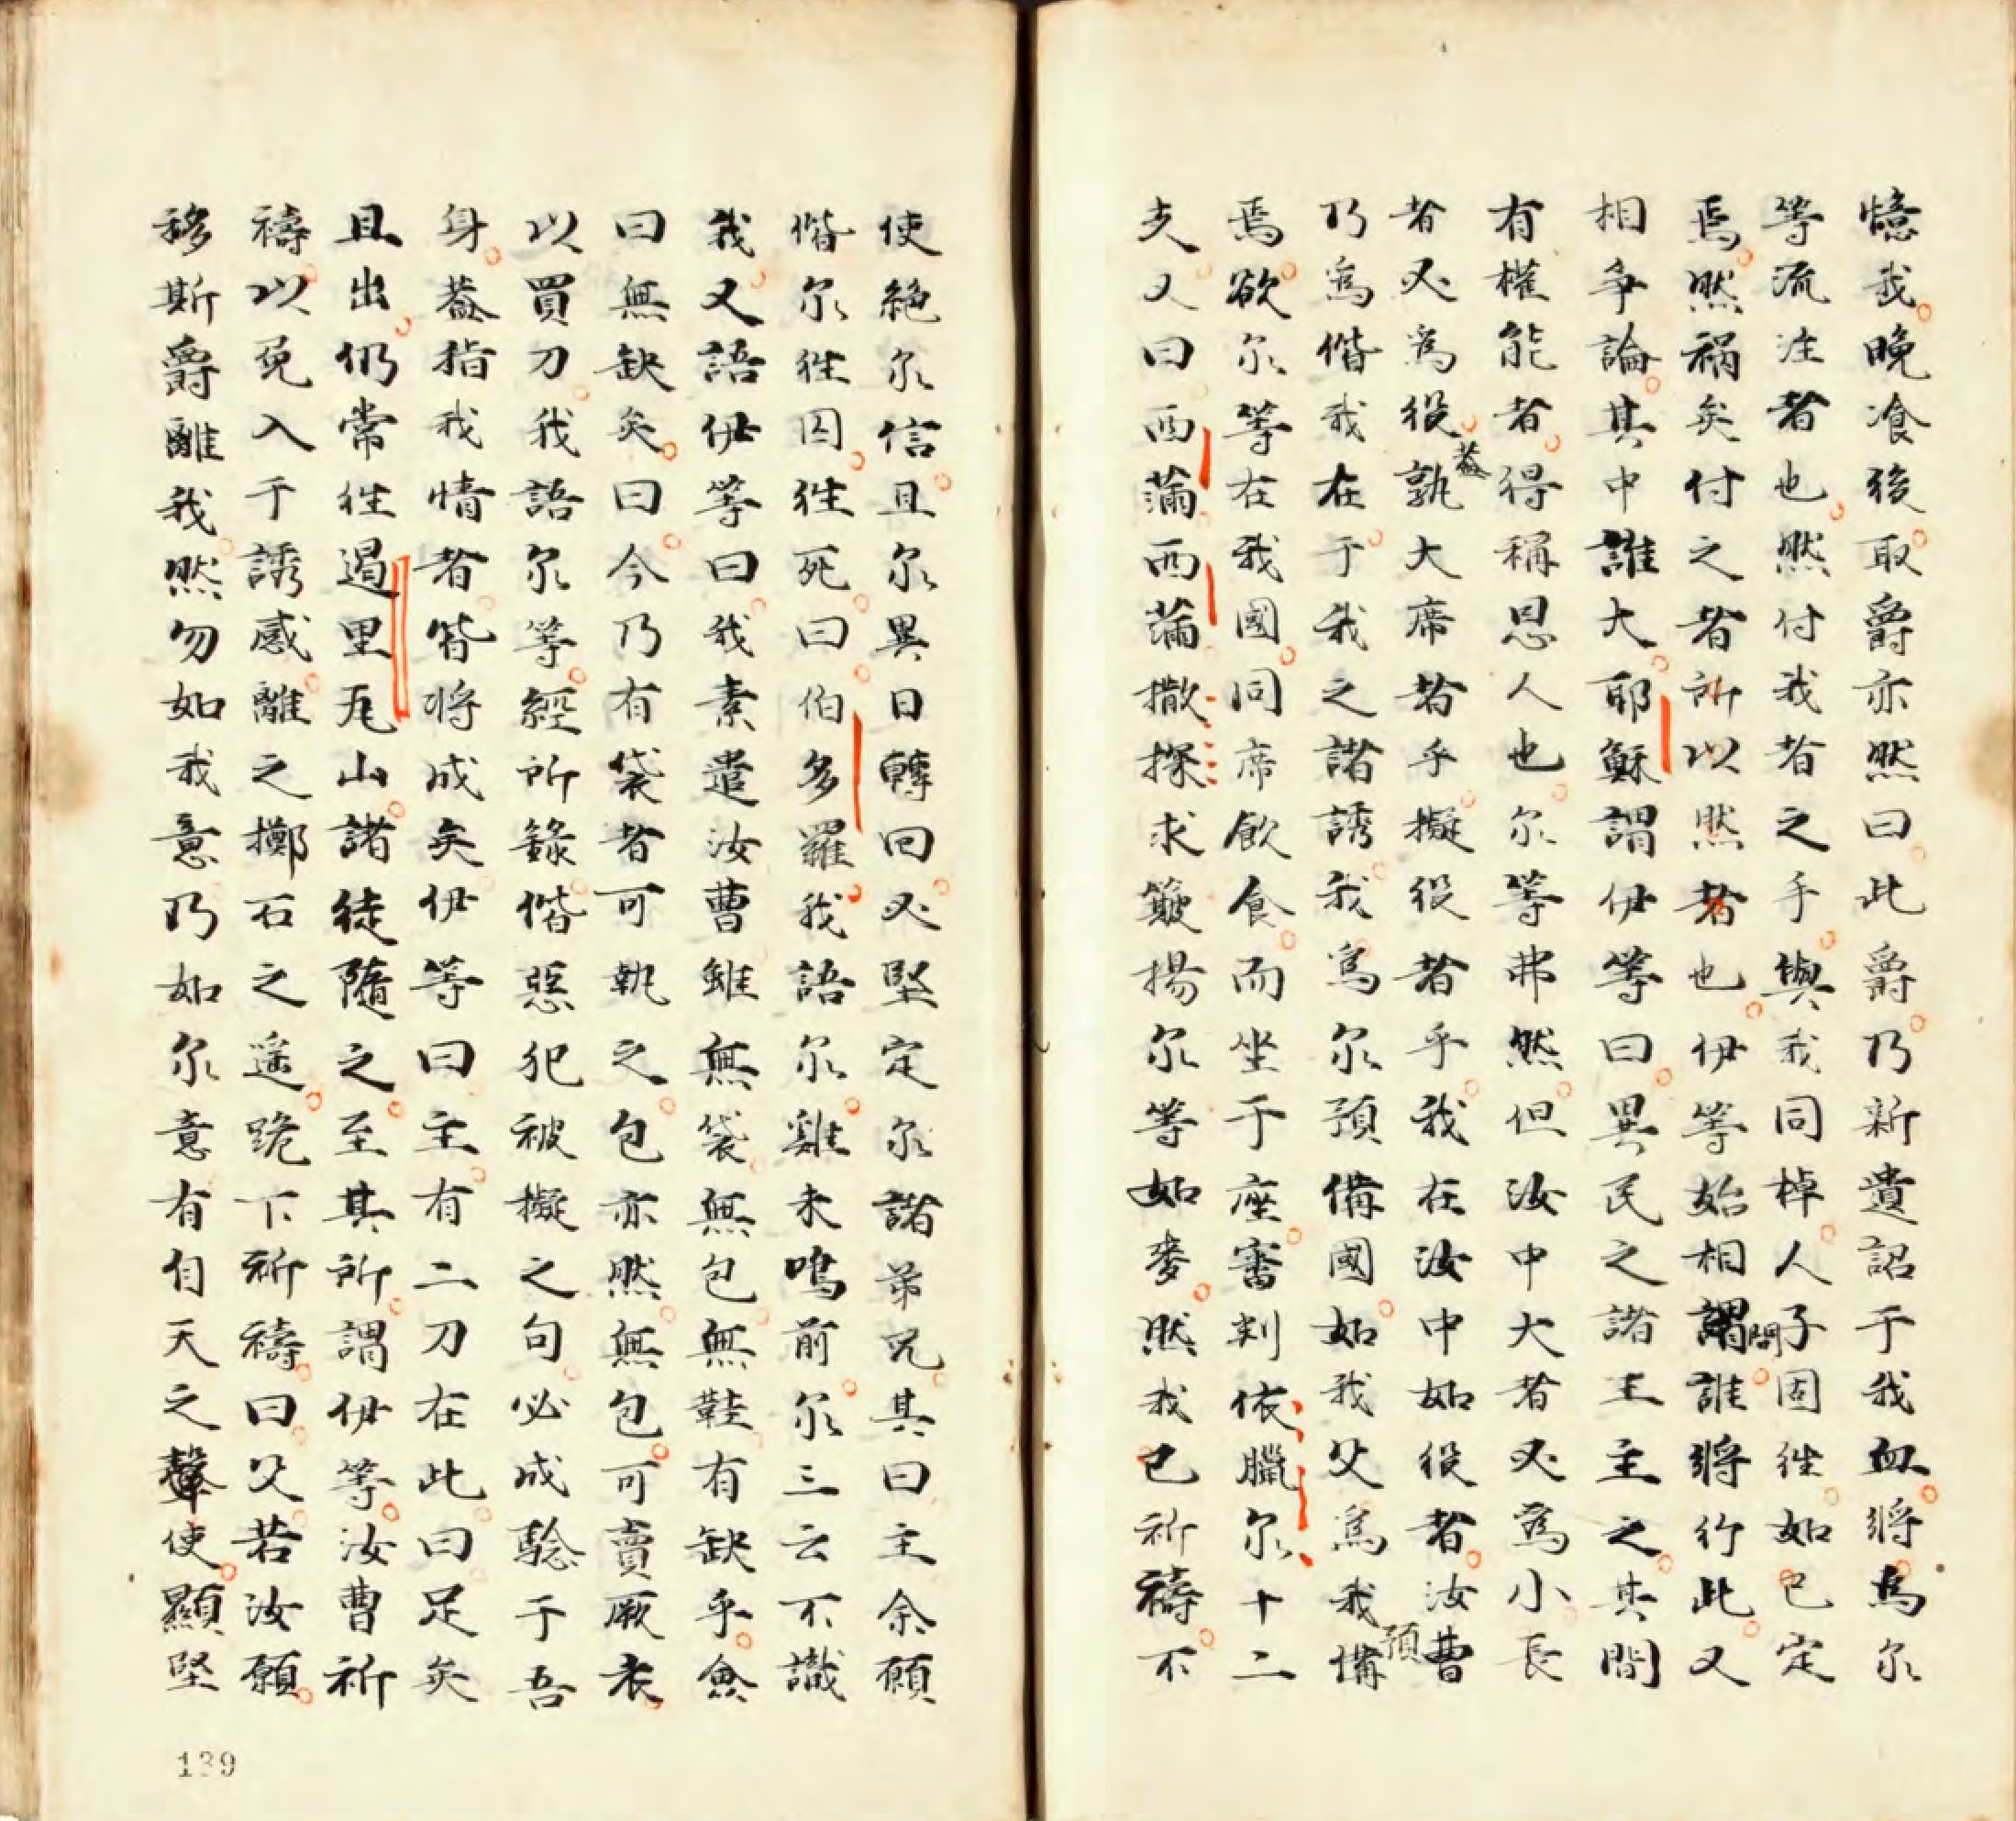 憶我晚飡後取爵亦然曰此爵乃新遺詔于我血將為尔
等流注者也然付我者之手與我同棹人子固徃如已定
焉然禍矣付之者所以然者也伊等始相謂問誰將行此又
相争論其中誰大耶穌謂伊等曰異民之諸王主之其間
有權能者得稱恩人也尔等弗然但汝中大者必為小長
者必為役蓋孰大席者乎擬役者乎我在汝中如役者汝曹
乃為偕我在于我之諸誘我為尔預備國如我父為我預備
焉欲尔等在我國同席飲食而坐于座審判依臘尔十二
支又曰西蒲西蒲撒探求簸揚尔等如麥然我已祈禱不
使絶尔信且尔異日轉回必堅定尔諸弟兄其曰主余願
偕尔徃囚徃死曰伯多羅我語尔雞未鳴前尔三云不識
我又語伊等曰我素遣汝曹雖無袋無包無鞋有缺乎僉
曰無缺矣曰今乃有袋者可執之包亦然無包可賣厥衣
以買刀我語尔等經所錄偕惡犯被擬之句必成騐于吾
身蓋指我情者皆將成矣伊等曰主有二刀在此曰足矣
且出仍常徃遏里瓦山諸徒隨之至其所謂伊等汝曹祈
禱以免入于誘感離之擲石之遥跪下祈禱曰父若汝願
移斯爵離我然勿如我意乃如尔意有自天之聲使顯堅
139